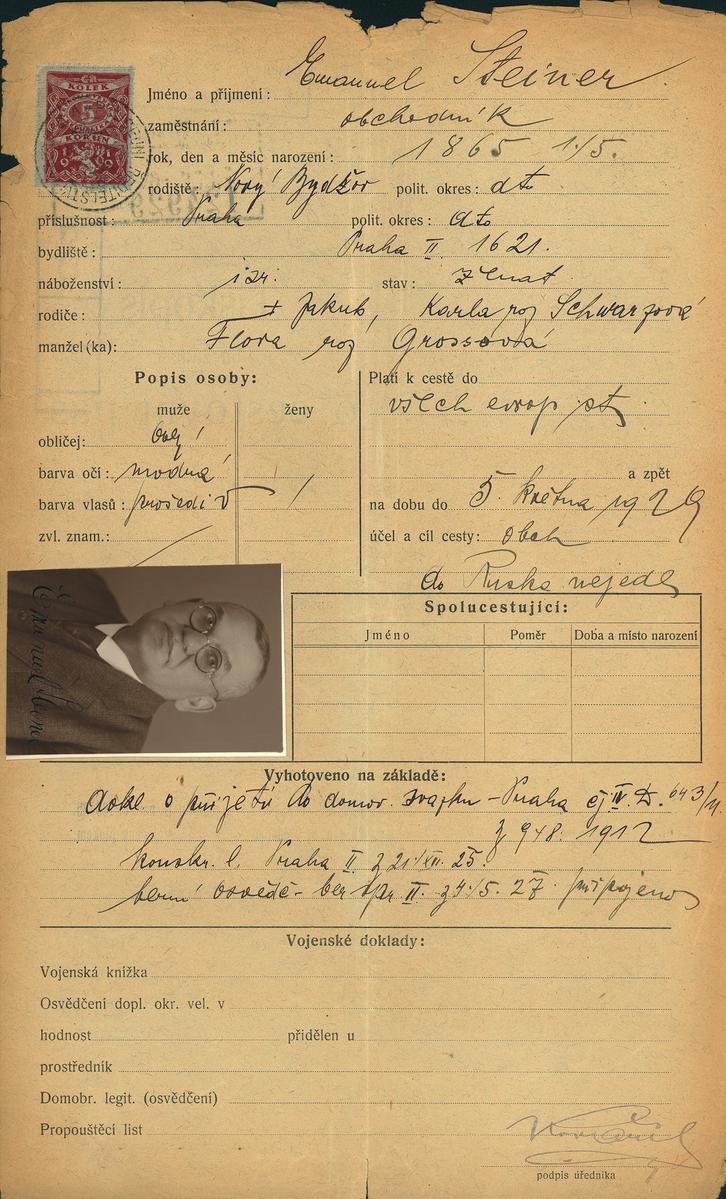 Jméno a příjmení: Emanuel Steiner
KOLEK
5
KORUN
1919
zaměstnání: obchodník
rok, den a měsíc narození: 1865 1/5.
rodiště: Nový Bydžov polit. okres: dto
příslušnost: Praha polit. okres: dto
bydliště: Praha II. 1621.
náboženství: izr. stav: ženat
rodiče: + Jakub, Karla roz Schwarzová
manžel (ka): Flora roz Grossová
Popis osoby:
muže ženy
obličej: ovál
barva očí: modrá
barva vlasů: prošediv /
zvl. znam.:
Platí k cestě do
všech evrop. st
a zpět
na dobu do 5. května 1929
účel a cíl cesty: obch
do Ruska nejede
Emanuel Steiner
Spolucestující:
Jméno Poměr Doba a místo narození
Vyhotoveno na základě:
dokl. o přijetí do domov. svazku - Praha čj IV. D. 643/11
z 9 48. 1912
konskr. l. Praha II. z 21./XII. 25.
berní osvědč - ber. spr. II. z 4/5. 27. připojeno
Vojenské doklady:
Vojenská knížka
Osvědčení dopl. okr. vel. v
hodnost přidělen u
prostředník
Domobr. legit. (osvědčení)
Propouštěcí list
podpis úředníka